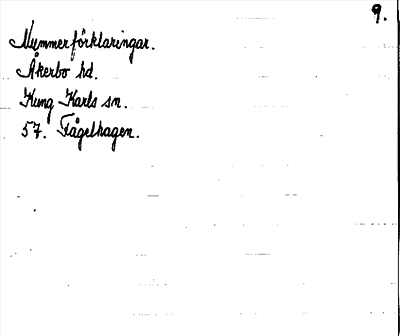 9.
Nummerförklaringar.
Åkerbo hd.
Kung Karls sn.
57. Fågelhagen.